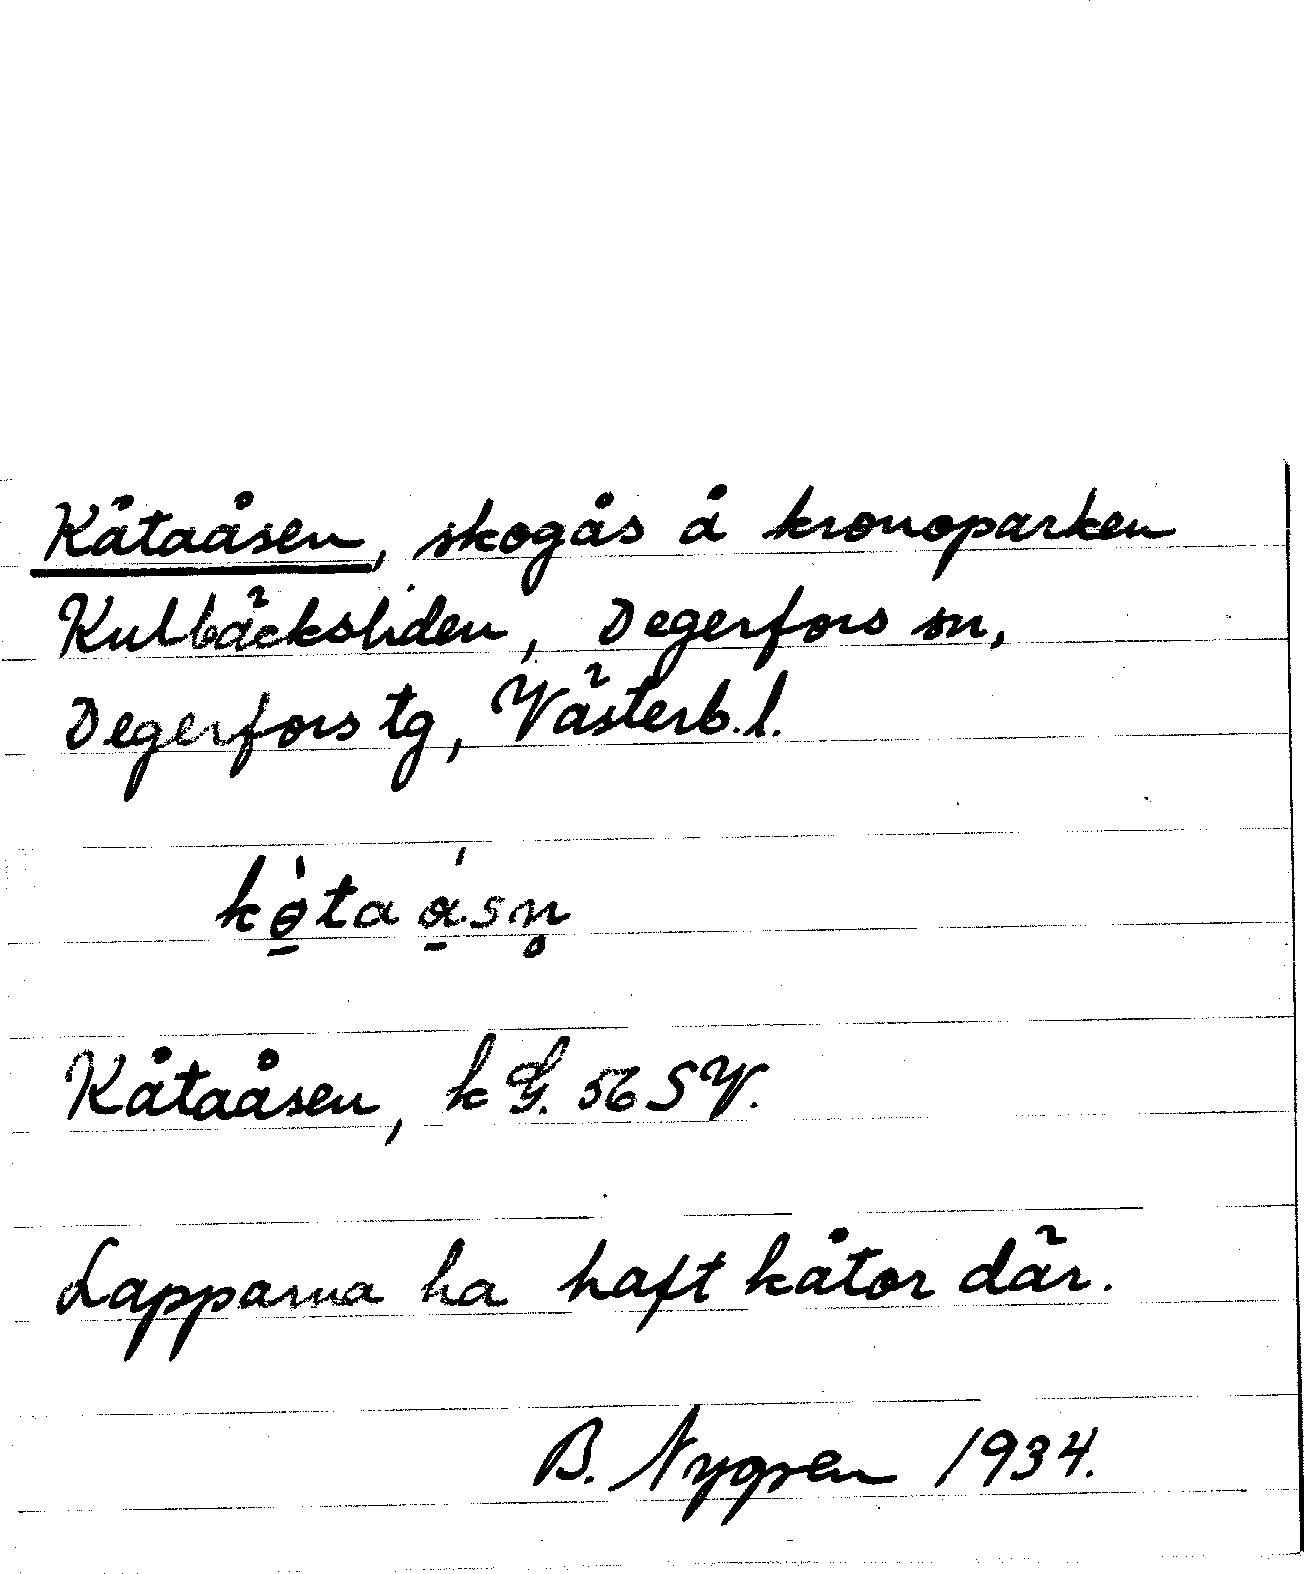 Kåtaåsen, skogås å kronoparken
Kulbäcksliden, Degerfors sn,
Degerfors tg, Västerb. l.
kɵ̠̀ta ɑ̠́.sn̥
Kåtaåsen, k G. 56 SV.
Lapparna ha haft kåtor där.
B. Nygren 1934.